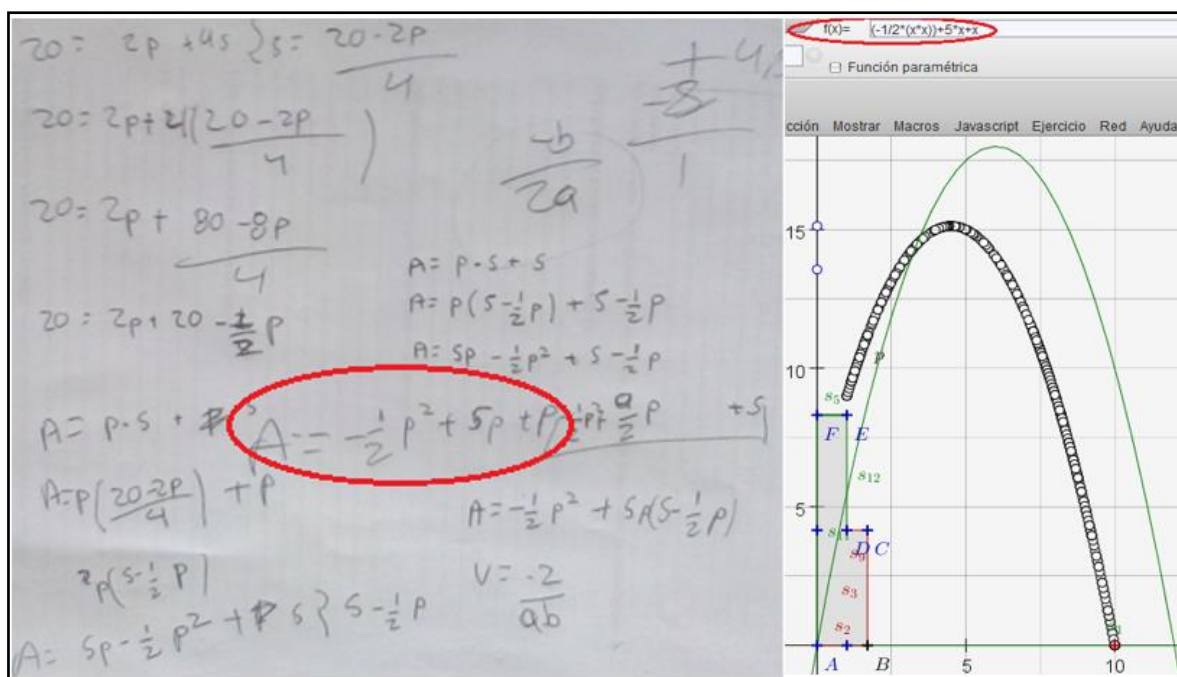 20 = 2p + 4s } s = 20 - 2p / 4
20 = 2p + 4( 20 - 2p / 4 )
20 = 2p + 80 - 8p / 4
20 = 2p + 20 - 1/2 p
A = p·s +
A = p( 20-2p / 4 ) + p
p(5-1/2 p)
A = 5p - 1/2 p² + s } 5 - 1/2 p
-b / 2a
-8 / 1
A = p·s + s
A = p(5 - 1/2 p) + 5 - 1/2 p
A = 5p - 1/2 p² + 5 - 1/2 p
A = - 1/2 p² + 5p + p
- 1/2 p² + 9/2 p + 5
A = - 1/2 p² + 5p(5 - 1/2 p)
V = -2 / ab
f(x)= (-1/2*(x*x))+5*x+x
Función paramétrica
cción Mostrar Macros Javascript Ejercicio Red Ayuda
15
10
5
p
s5
F E
s12
s11 D C
s9
s3
s2
A B 5 10